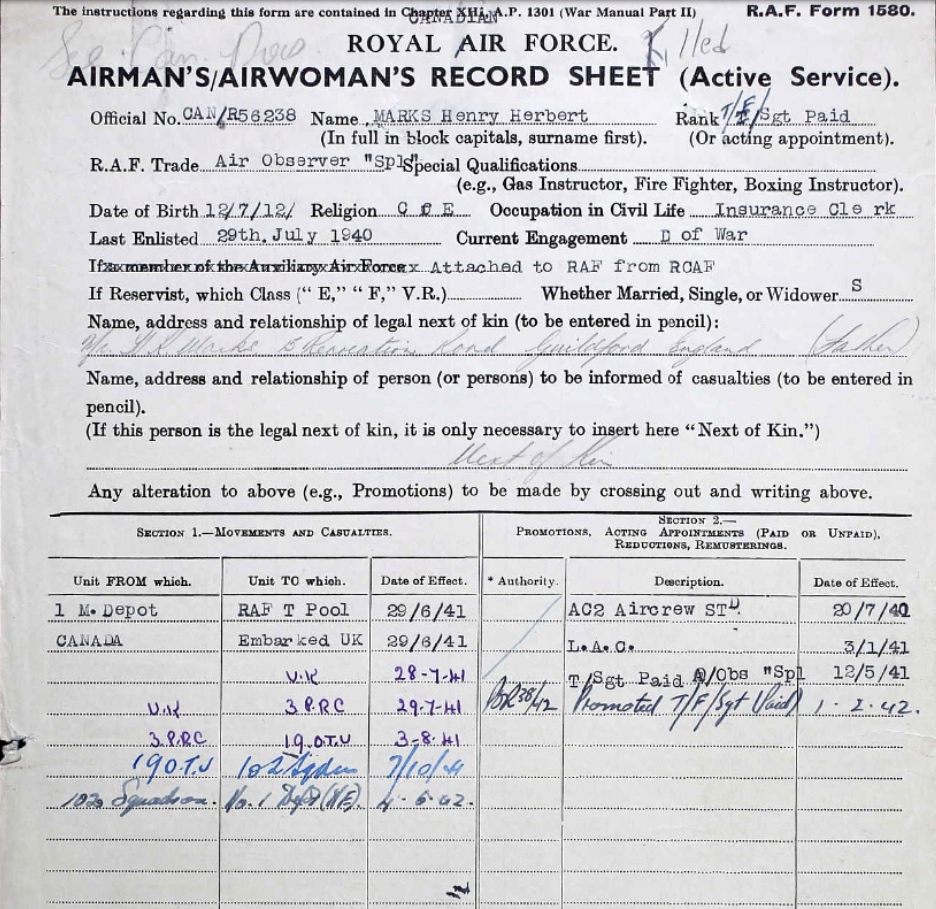 The instructions regarding this form are contained in Chapter XIII, A.P. 1301 (War Manual Part II) R.A.F. Form 1580.
CANADIAN
See Can. Docs Killed
ROYAL AIR FORCE.
AIRMAN'S/AIRWOMAN'S RECORD SHEET (Active Service).
Official No. CAN/R56238 Name MARKS Henry Herbert Rank T/F/Sgt Paid
(In full in block capitals, surname first). (Or acting appointment).
R.A.F. Trade Air Observer "Spl" Special Qualifications
(e.g., Gas Instructor, Fire Fighter, Boxing Instructor).
Date of Birth 12/7/12/ Religion C of E Occupation in Civil Life Insurance Cle rk
Last Enlisted 29th. July 1940 Current Engagement D of War
If a member of the Auxiliary Air Force x Attached to RAF from RCAF
If Reservist, which Class ("E," "F," V.R.) Whether Married, Single, or Widower S
Name, address and relationship of legal next of kin (to be entered in pencil):
Marks Recreation Road Guildford England (Father)
Name, address and relationship of person (or persons) to be informed of casualties (to be entered in
pencil).
(If this person is the legal next of kin, it is only necessary to insert here "Next of Kin.")
Next of Kin
Any alteration to above (e.g., Promotions) to be made by crossing out and writing above.
SECTION 1.—MOVEMENTS AND CASUALTIES. SECTION 2.—
PROMOTIONS, ACTING APPOINTMENTS (PAID OR UNPAID),
REDUCTIONS, REMUSTERINGS.
Unit FROM which. Unit TO which. Date of Effect. * Authority. Description. Date of Effect.
1 M. Depot RAF T Pool 29/6/41 AC2 Aircrew STD. 20/7/40
CANADA Embarked UK 29/6/41 L.A.C. 3/1/41
U.K 28-7-41 T/Sgt Paid A/Obs "Spl 12/5/41
U.K 3.P.R.C 29.7-41 BR38/42 Promoted T/F/Sgt (Paid) 1.2.42.
3.P.R.C 19.O.T.U 3-8-41
19 O.T.U 102 Sqdn 7/10/41
102 Squadron. No. 1 Depot (N.E.) 4.6.42.